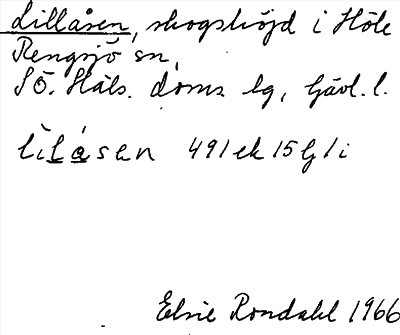 Lillåsen, skogshöjd i Höle
Rengsjö sn,
SÖ. Häls. doms lg, Gävl. l.
lìlåsen 491ek15g1i
Elsie Rondahl 1966